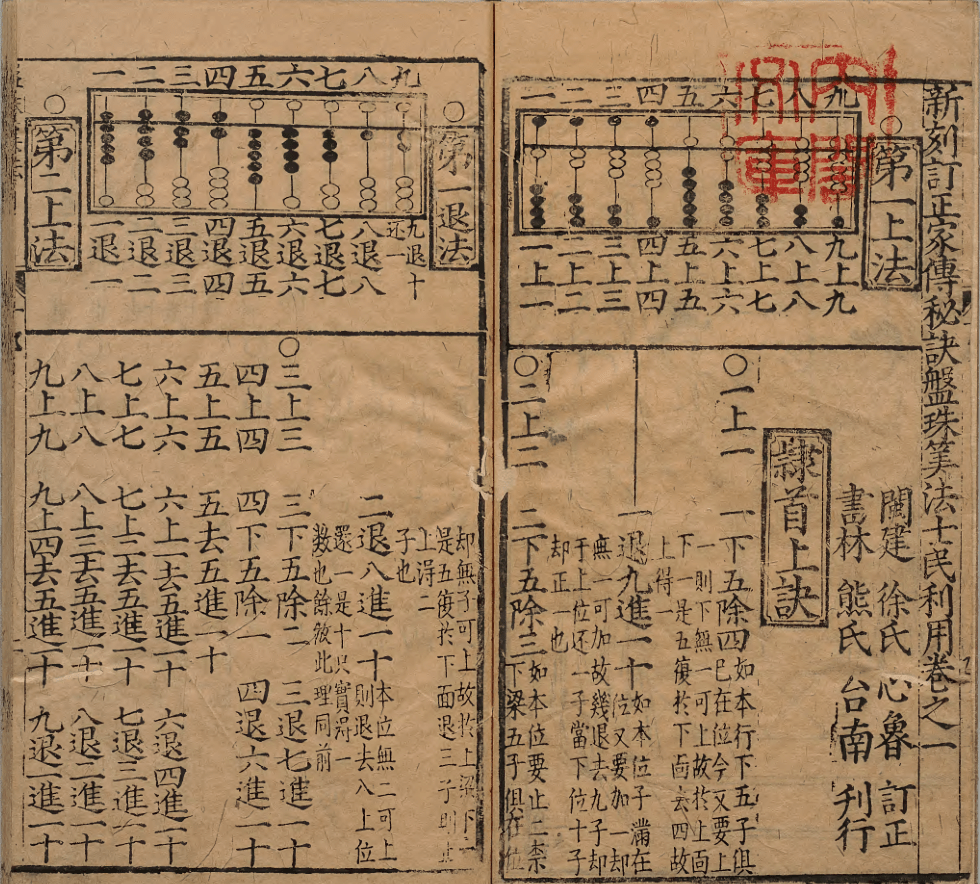 新刻訂正家傳秘訣盤珠筭法士民利用卷之一
閩建 徐氏 心魯 訂正
書林 熊氏 台南 刋行
第一上法
九 八 七 六 五 四 三 二 一
九上九
八上八
七上七
六上六
五上五
四上四
三上三
二上二
一上一
隸首上訣
○一上一 一下五除四 如本行下五子俱
已在位今又要上
一則下無一可上故於上面
下一是五復於下面去四故
上得一
一退九進一十 如本位子滿在
位又要加一却
無一可加故幾退去九子却
于上位还一子當下位十子
却正一也
○二上二 二下五除三 如本位要上二柰
下梁五子俱在位
却無子可上故於上梁下
是五復於下面退三子則止
上得二
子也
二退八進一十 本位無二可上
則退去八上位
還一是十只實得一
数也餘倣此理同前
○三上三 三下五除二 三退七進一十
四上四 四下五除一 四退六進一十
五上五 五去五進一十
六上六 六上一去五進一十 六退四進一十
七上七 七上二去五進一十 七退三進一十
八上八 八上三去五進一十 八退二進一十
九上九 九上四去五進一十 九退一進一十
○第一退法
九 八 七 六 五 四 三 二 一
九退十
还一
八退八
七退七
六退六
五退五
四退四
三退三
二退二
一退一
○第二上法